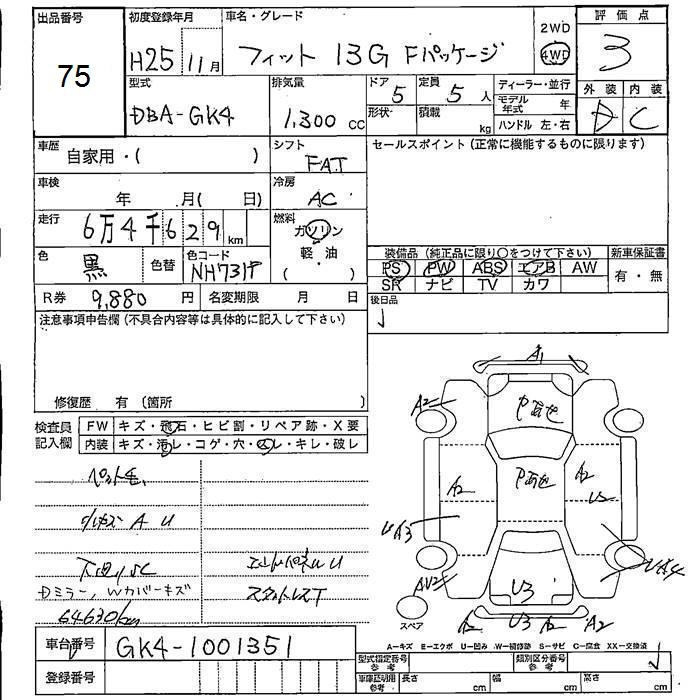 出品番号
75
初度登録年月
H25 11月
車名・グレード
フィット 13G Fパッケージ
2WD
4WD
評価点
3
型式
DBA-GK4
排気量
1,300 cc
ドア 5
形状
定員 5 人
積載 kg
ディーラー・並行
モデル年式 年
ハンドル 左・右
外装 内装
D C
車歴 自家用・( )
シフト
FAT
セールスポイント(正常に機能するものに限ります)
車検 年 月( 日)
冷房
AC
走行 6万4千629km
燃料
ガソリン
軽・油
( )
色 黒 色替
色コード
NH731P
装備品 (純正品に限り〇をつけて下さい)
新車保証書
PS PW ABS エアB AW
有・無
SR ナビ TV カワ
R券 9,880 円
名変期限 月 日
後日品
注意事項申告欄(不具合内容等は具体的に記入して下さい)
修復歴 有(箇所 )
検査員記入欄
FW キズ・飛石・ヒビ割・リペア跡・X要
内装 キズ・汚レ・コゲ・穴・スレ・キレ・破レ
ペット毛
小キズ A U
下回りSC
エンドパネルU
Dミラー、Wカバーキズ
スタットレスT
64630km
A1
A2
Pあせ
Pあせ
A2
A2
U2
UA3
UA4
AU2
U3
スペア
A2
U3
A2
A2
車台番号 GK4-1001351
登録番号
A-キズ E-エクボ U-凹み W-補修跡 S-サビ C-腐食 XX-交換済
型式指定番号 参考
類別区分番号 参考
車庫証明用 参考
長さ cm
幅 cm
高さ cm